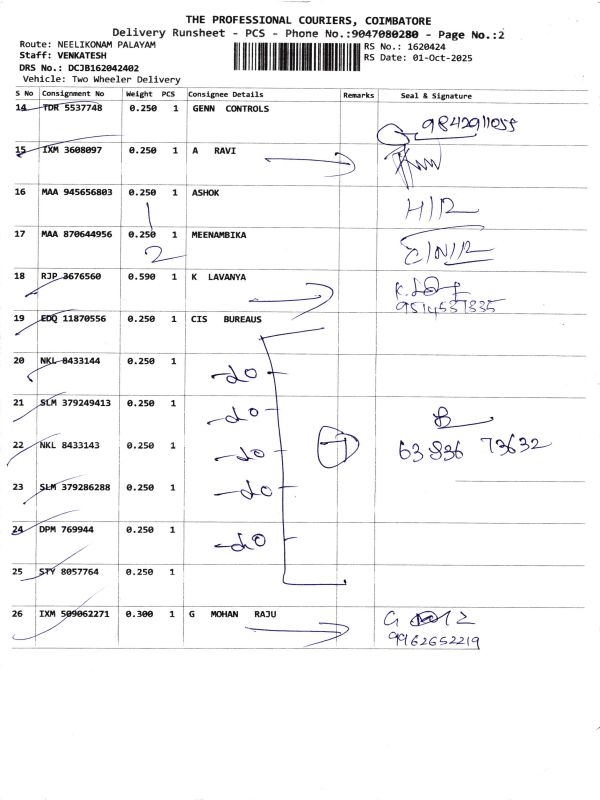 THE PROFESSIONAL COURIERS, COIMBATORE
Delivery Runsheet - PCS - Phone No.:9047080280 - Page No.:2
Route: NEELIKONAM PALAYAM
RS No.: 1620424
Staff: VENKATESH
RS Date: 01-Oct-2025
DRS No.: DCJB162042402
Vehicle: Two Wheeler Delivery
S No Consignment No Weight PCS Consignee Details Remarks Seal & Signature
14 TDR 5537748 0.250 1 GENN CONTROLS
9842911055
15 IXM 3608097 0.250 1 A RAVI
16 MAA 945656803 0.250 1 ASHOK
H/R
17 MAA 870644956 0.250 1 MEENAMBIKA
2
C/N/R
18 RJP 3676560 0.590 1 K LAVANYA
9514537335
19 EDQ 11870556 0.250 1 CIS BUREAUS
20 NKL 8433144 0.250 1 -do
21 SLM 379249413 0.250 1 -do
22 NKL 8433143 0.250 1 -do 7 63836 73632
23 SLM 379286288 0.250 1 -do
24 DPM 769944 0.250 1 -do
25 STY 8057764 0.250 1
26 IXM 509062271 0.300 1 G MOHAN RAJU
9962652219